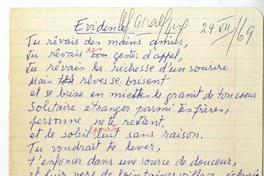 Evidence
24 VII /69
Tu rêvais des mains amies,
Tu rêvais des gestes d'appel,
Tu rêvais la richesse d'un sourire
mais tes rêves se brisent
et se brise en miettes le granit de ton coeur
Solitaire étranger parmi tes frères,
personne ne te retient,
et le soleil luit sans raison.
Tu voudrait te lever,
t'enfoncer dans une source de douceur,
et fuir vers de lointaines villes